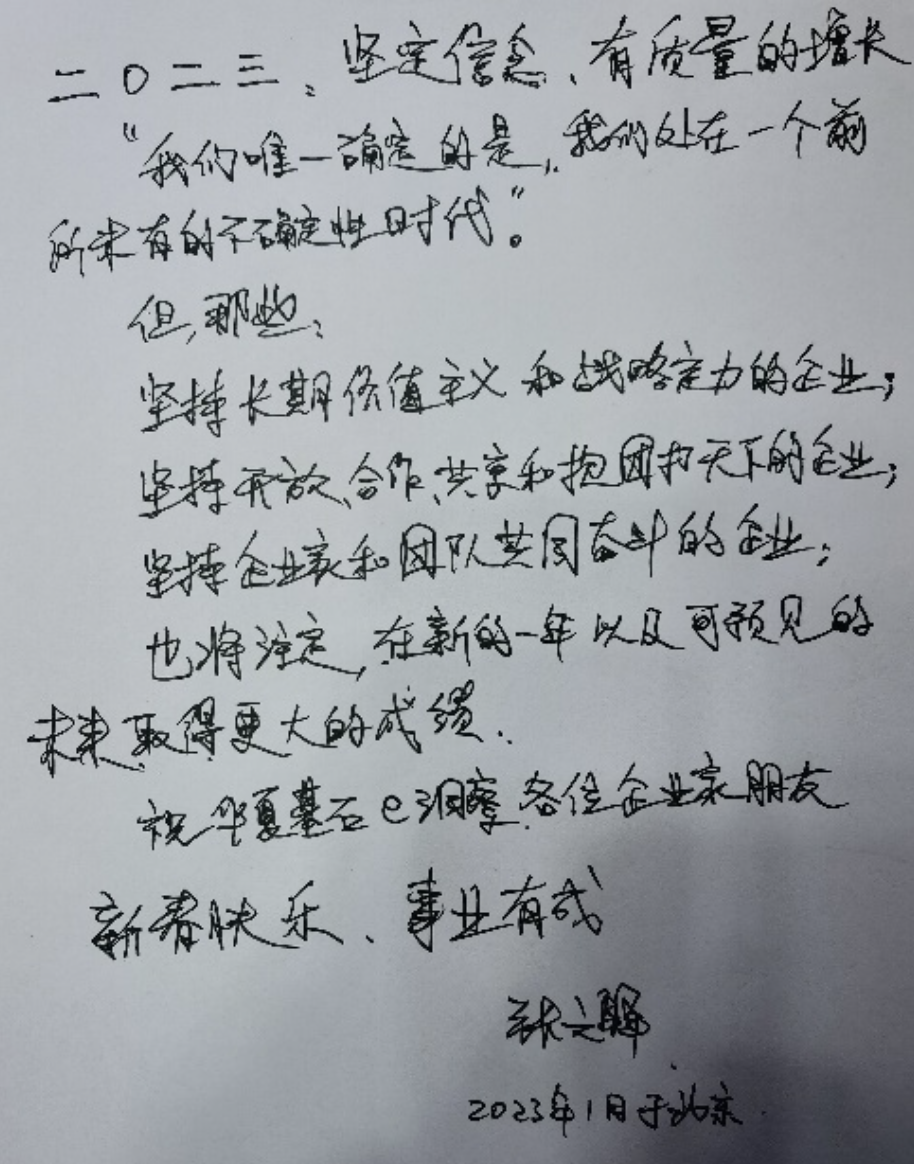 二〇二三、坚定信念、有质量的增长
“我们唯一确定的是，我们处在一个前
所未有的不确定性时代”。
但，那些：
坚持长期价值主义和战略定力的企业；
坚持开放、合作、共享和抱团打天下的企业；
坚持企业家和团队共同奋斗的企业；
也将注定，在新的一年以及可预见的
未来，取得更大的成绩．
祝华夏基石e洞察各位企业家朋友
新春快乐、事业有成
张文锋
2023年1月于北京